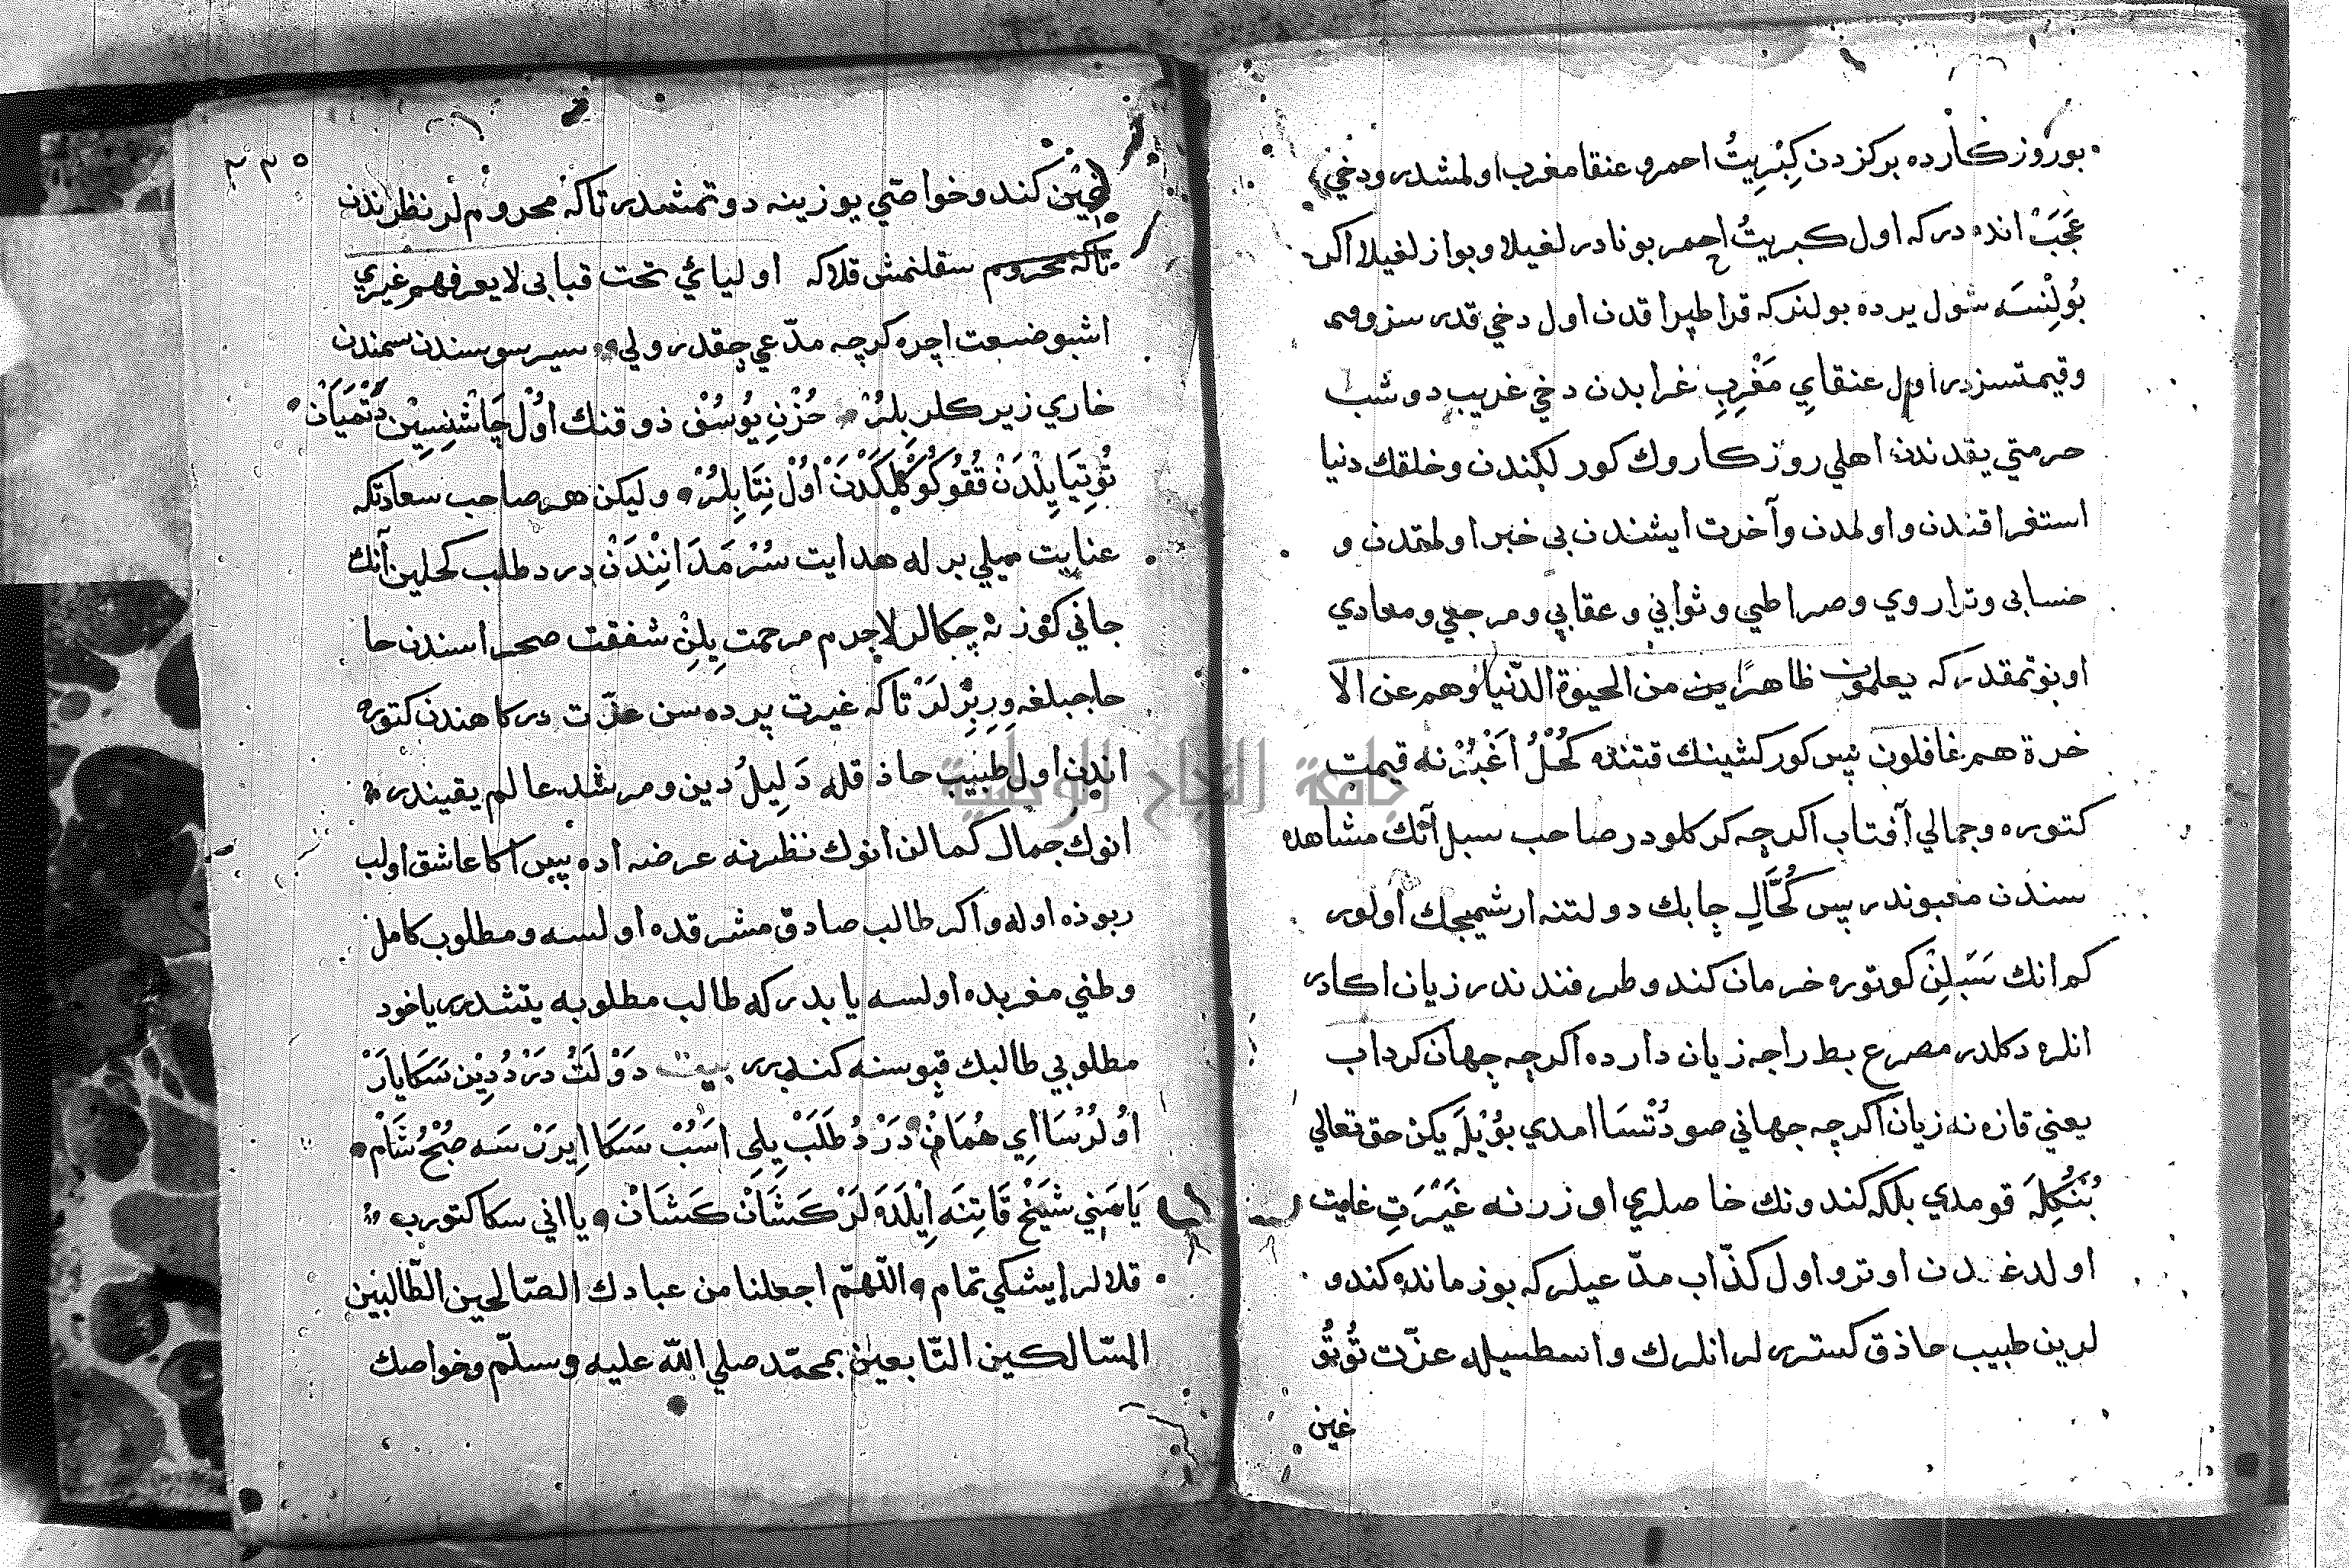 بوروزكارده بركزدن كِبْرِيتُ احمر و عنقا مغرب اولمشدر ودخي
عَجَبْ انده دركه اول كبريتُ احمر بو نادر لغيلا و بواز لغيلا اكر
بُولِنْسَه شول يرده بولنركه قراطپراقدن اول دخي قدر سزومس
وقيمتسزدر اول عنقايِ مَغْرِبِ غرابدن دخي غريب دوشب
حرمتي يقدندن اهلي روزكاروك كور لكندن وخلقك دنيا
استغراقندن واولمدن وآخرت ايشندن بي خبر اولمقدن و
حسابي وترازوي وصراطي وثوابي وعقابي ومرجعي ومعادي
اونوتمقدركه يعلمون ظاهرًا من الحيوة الدّنيا وهم عن الا
خرة هم غافلون پس كور كشينك قتنده كُحْلُ اَغْبُرْنه قيمت
كتوره وجمالي آفتاب اكرچه كر كلودر صاحب سبل آنك مشاهده
سندن مغبوندر پس كُحَّالِ چابك دولتنه ارشميجك اولور
كم انك سَبَلِنْ كوتوره خرمان كندو طرفندندر زيان اكادر
انلره دكلدر مصرع بط راچه زيان دارد اكرچه جهان كرداب
يعني قازه نه زيان اكرچه جهاني صو دُتْسَا امدي بُوْيلَه يكن حق تعالي
بُنُنْكِلَه قومدي بلكه كندونك خاصلري اوزرنه غَيْرَتِ غايت
اولدغندن اوترو اول كذّاب مدّعيلركه بوزمانده كندو
لرين طبيب حاذق كسترر لر انلرك واسطسيله عزّت تُوتُو
غين
٢٣٥
غين كندو خواصّي يوزينه دوتمشدر تاكه محروم لر نظرندن
تاكه محروم سقلنمش قلاكه اوليائي تحت قبابي لا يعرفهم غيري
اشبو ضعت اچره كرچه مدّعي چقدر ولي سير سوسندن سمندن
خاري زيركلر بلُرْ حُزْنِ يُوسُفْ ذوقنك اوُل چَاشْنِسِيْن دَتْمَيَانْ
تُوتِيَا يِلْدَنْ قُقُو كُوكُلِكَدْنَ اوُل نِتَا بِلُرْ وليكن هر صاحب سعادتكه
عنايت ميلي بر له هدايت سُرْمَدَانِنْدَنْ درد طلب كحلين آنك
جاني كوزنه چكالر لاجرم مرحمت يِلِنْ شفقت صحراسندن حا
حاجبلغه وِرِبِرْلَرْ تاكه غيرت پرده سن عزّت دركاهندن كتوره
اندن اول طبيب حاذقله دَلِيلُ دين ومرشد عالم يقيندر
انوك جمال كمالن انوك نظرنه عرضه اده پس اكا عاشق اولب
ربوده اوله واكر طالب صادق مشرقده اولسه ومطلوب كامل
وطني مغربده اولسه يا بدركه طالب مطلوبه يتشدرر ياخود
مطلوبي طالبك قپوسنه كندرر بيت دَوْلَتُ دَرْدُ دِيْن سَكَا يَارْ
اوُلُرْسَا اي هُمَامْ دَرْدُ طَلَبْ يِلِى اَسُبْ سَكَا اِيرَنْ سَه صُبْحُ شَامْ
يَا سَنِي شَيْخْ قَاتِنَه اِيْلَدَه لَرْ كَشَانْ كَشَانْ يا اني سكا كتورب
قلالر ايشكي تمام واللهمّ اجعلنا من عبادك الصّالحين الطّالبين
السّالكين التّابعين بمحمّد صلي الله عليه وسلّم وخواصك
جامعة النجاح الوطنية